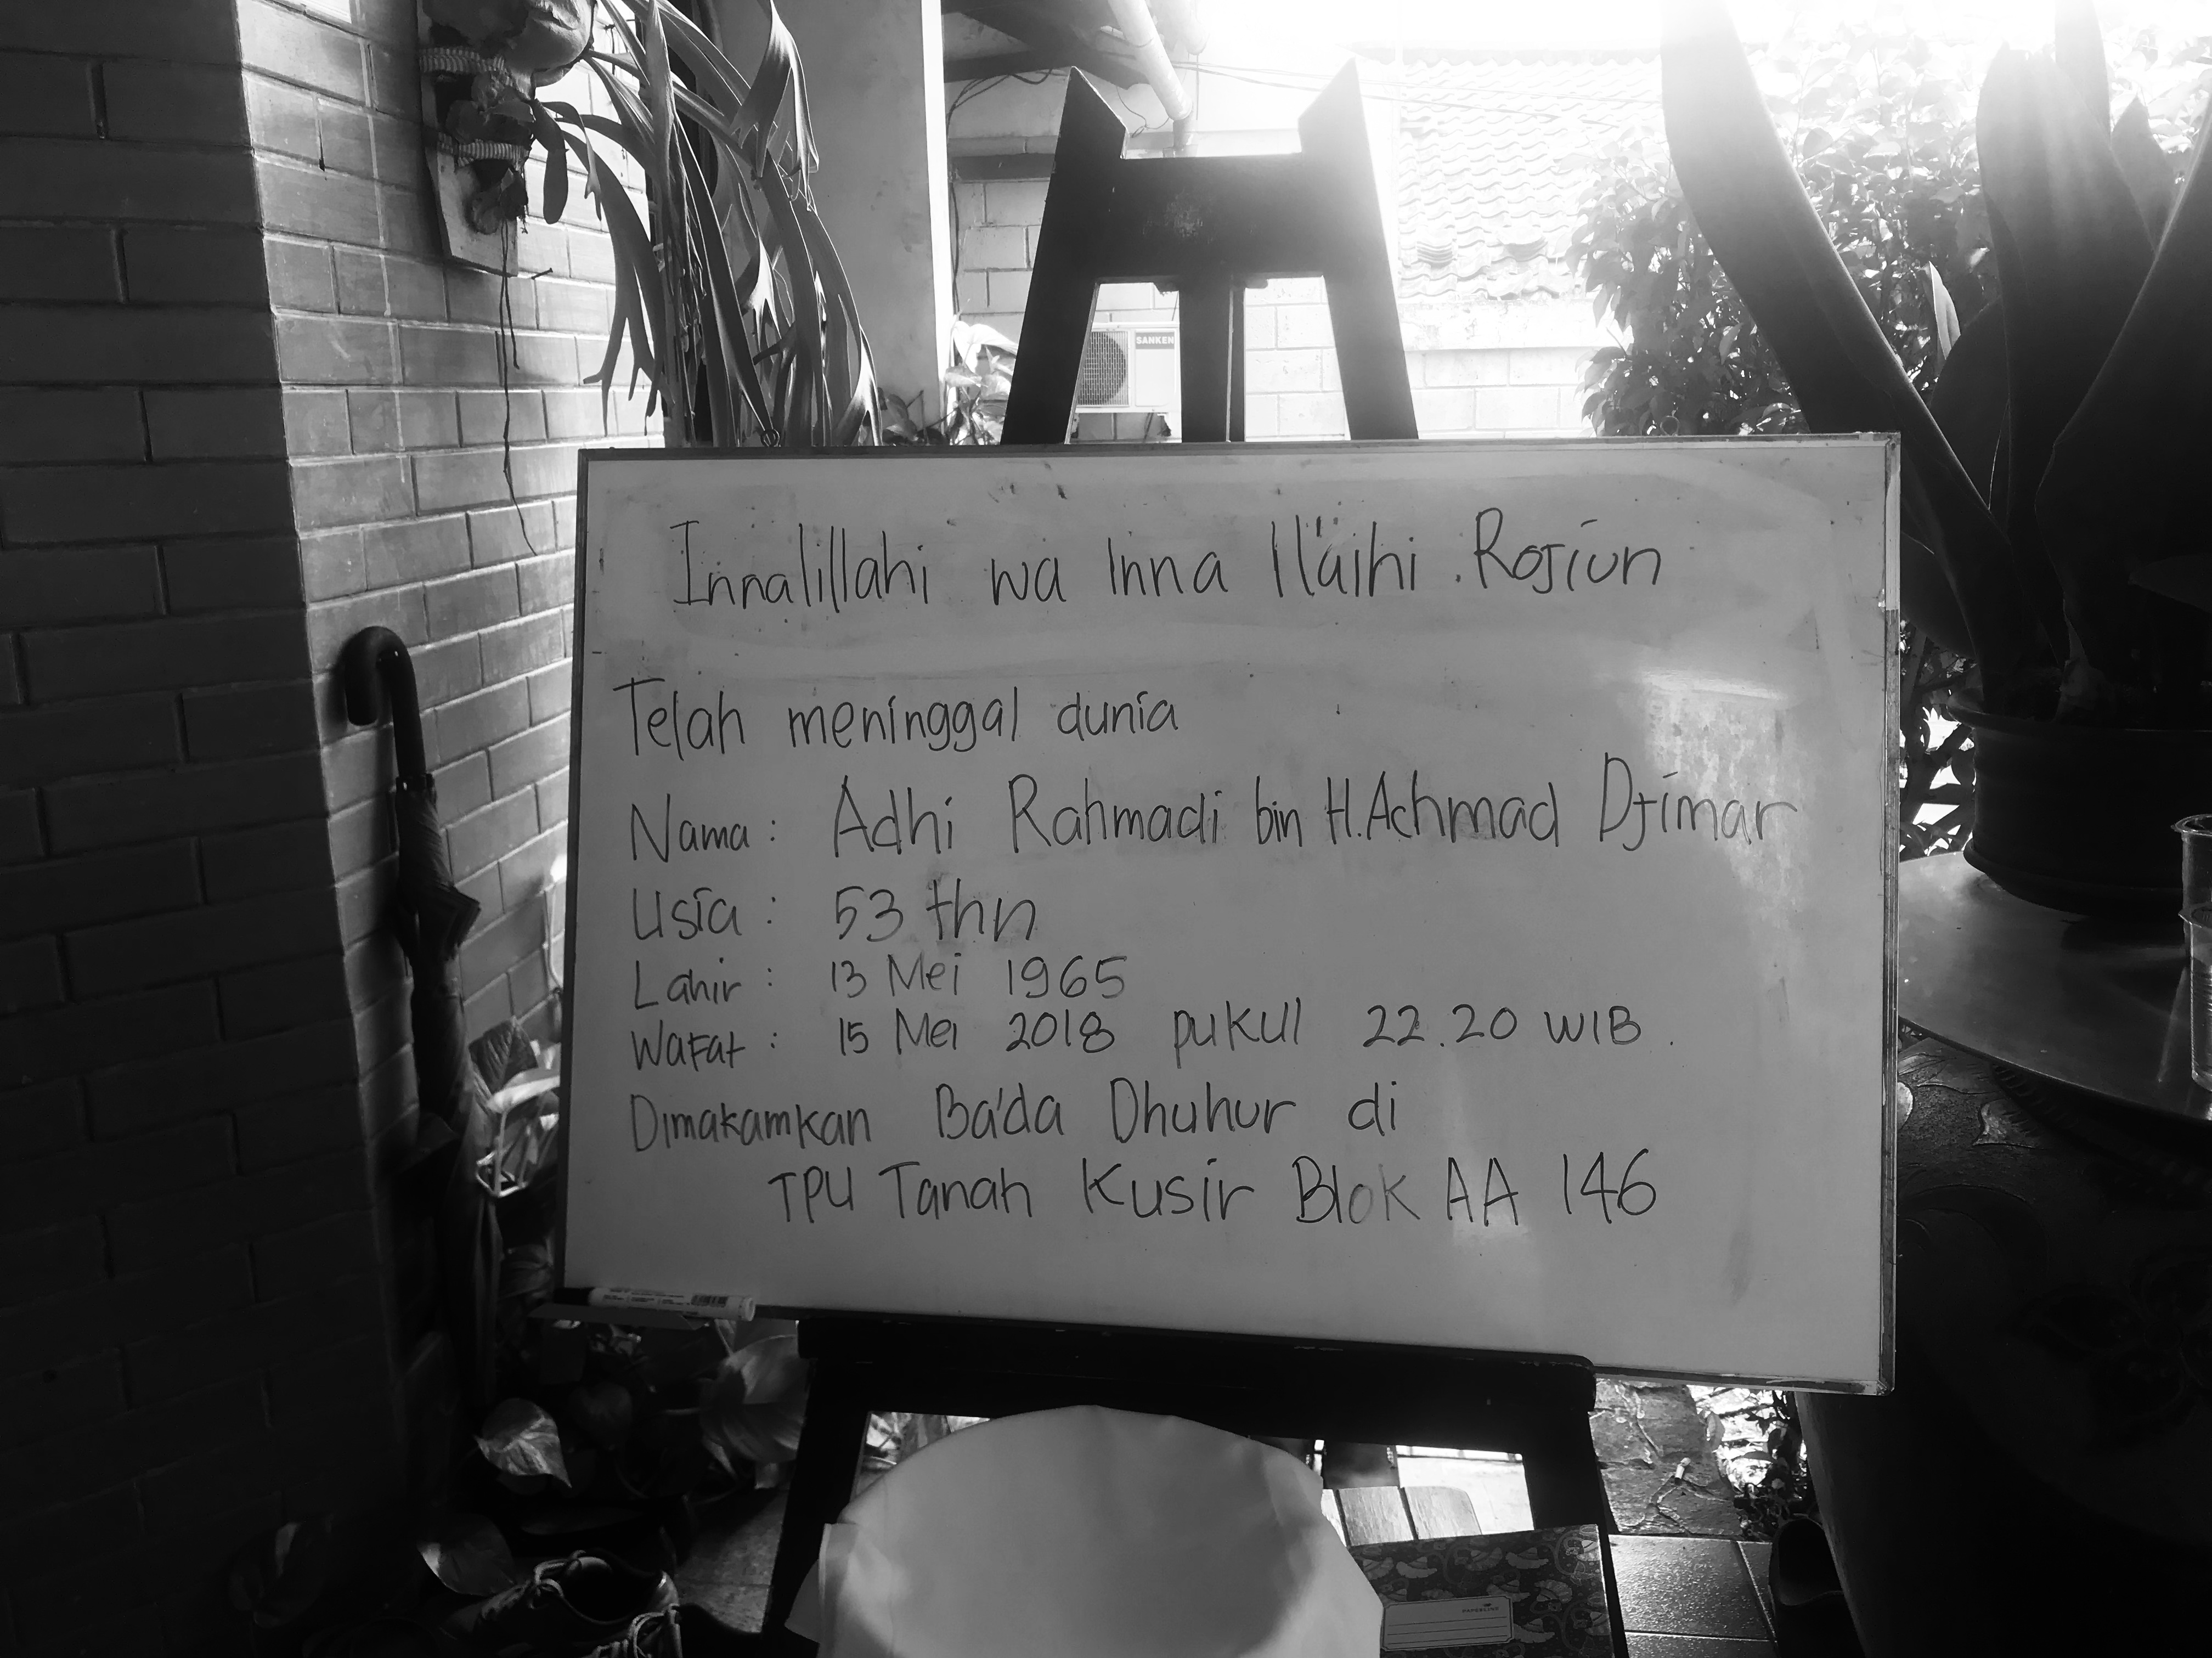 SANKEN
Innalillahi wa Inna Ilaihi Rojiun
Telah meninggal dunia
Nama : Adhi Rahmadi bin H. Achmad Djimar
Usia : 53 thn
Lahir : 13 Mei 1965
Wafat : 15 Mei 2018 pukul 22.20 WIB.
Dimakamkan Ba'da Dhuhur di
TPU Tanah Kusir Blok AA 146
PAPERLINE